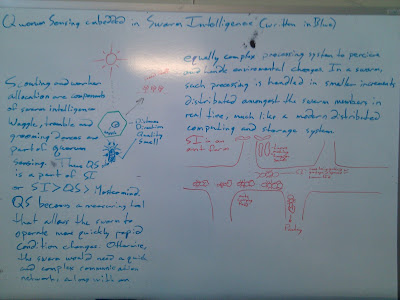 Quorum Sensing embedded in "Swarm Intelligence" (written in Blue)
Scouting and worker
allocation are components
of swarm intelligence
Waggle, tremble and
grooming dances are
part of quorum
sensing. Thus QS
is a part of SI
or SI>QS> Mastermind.
QS becomes a measuring tool
that allows the swarm to
operate more quickly, rapid
condition changes. Otherwise,
the swarm would need a quick
and complex communication
network, along with an
Distance
Direction
Quality
Smell?
equally complex processing system to percieve
and handle enviromental changes. In a swarm,
such processing is handled in smaller increments
distributed amongst the swarm members in
real time, much like a modern distributed
computing and storage system
SI in an
ant Farm